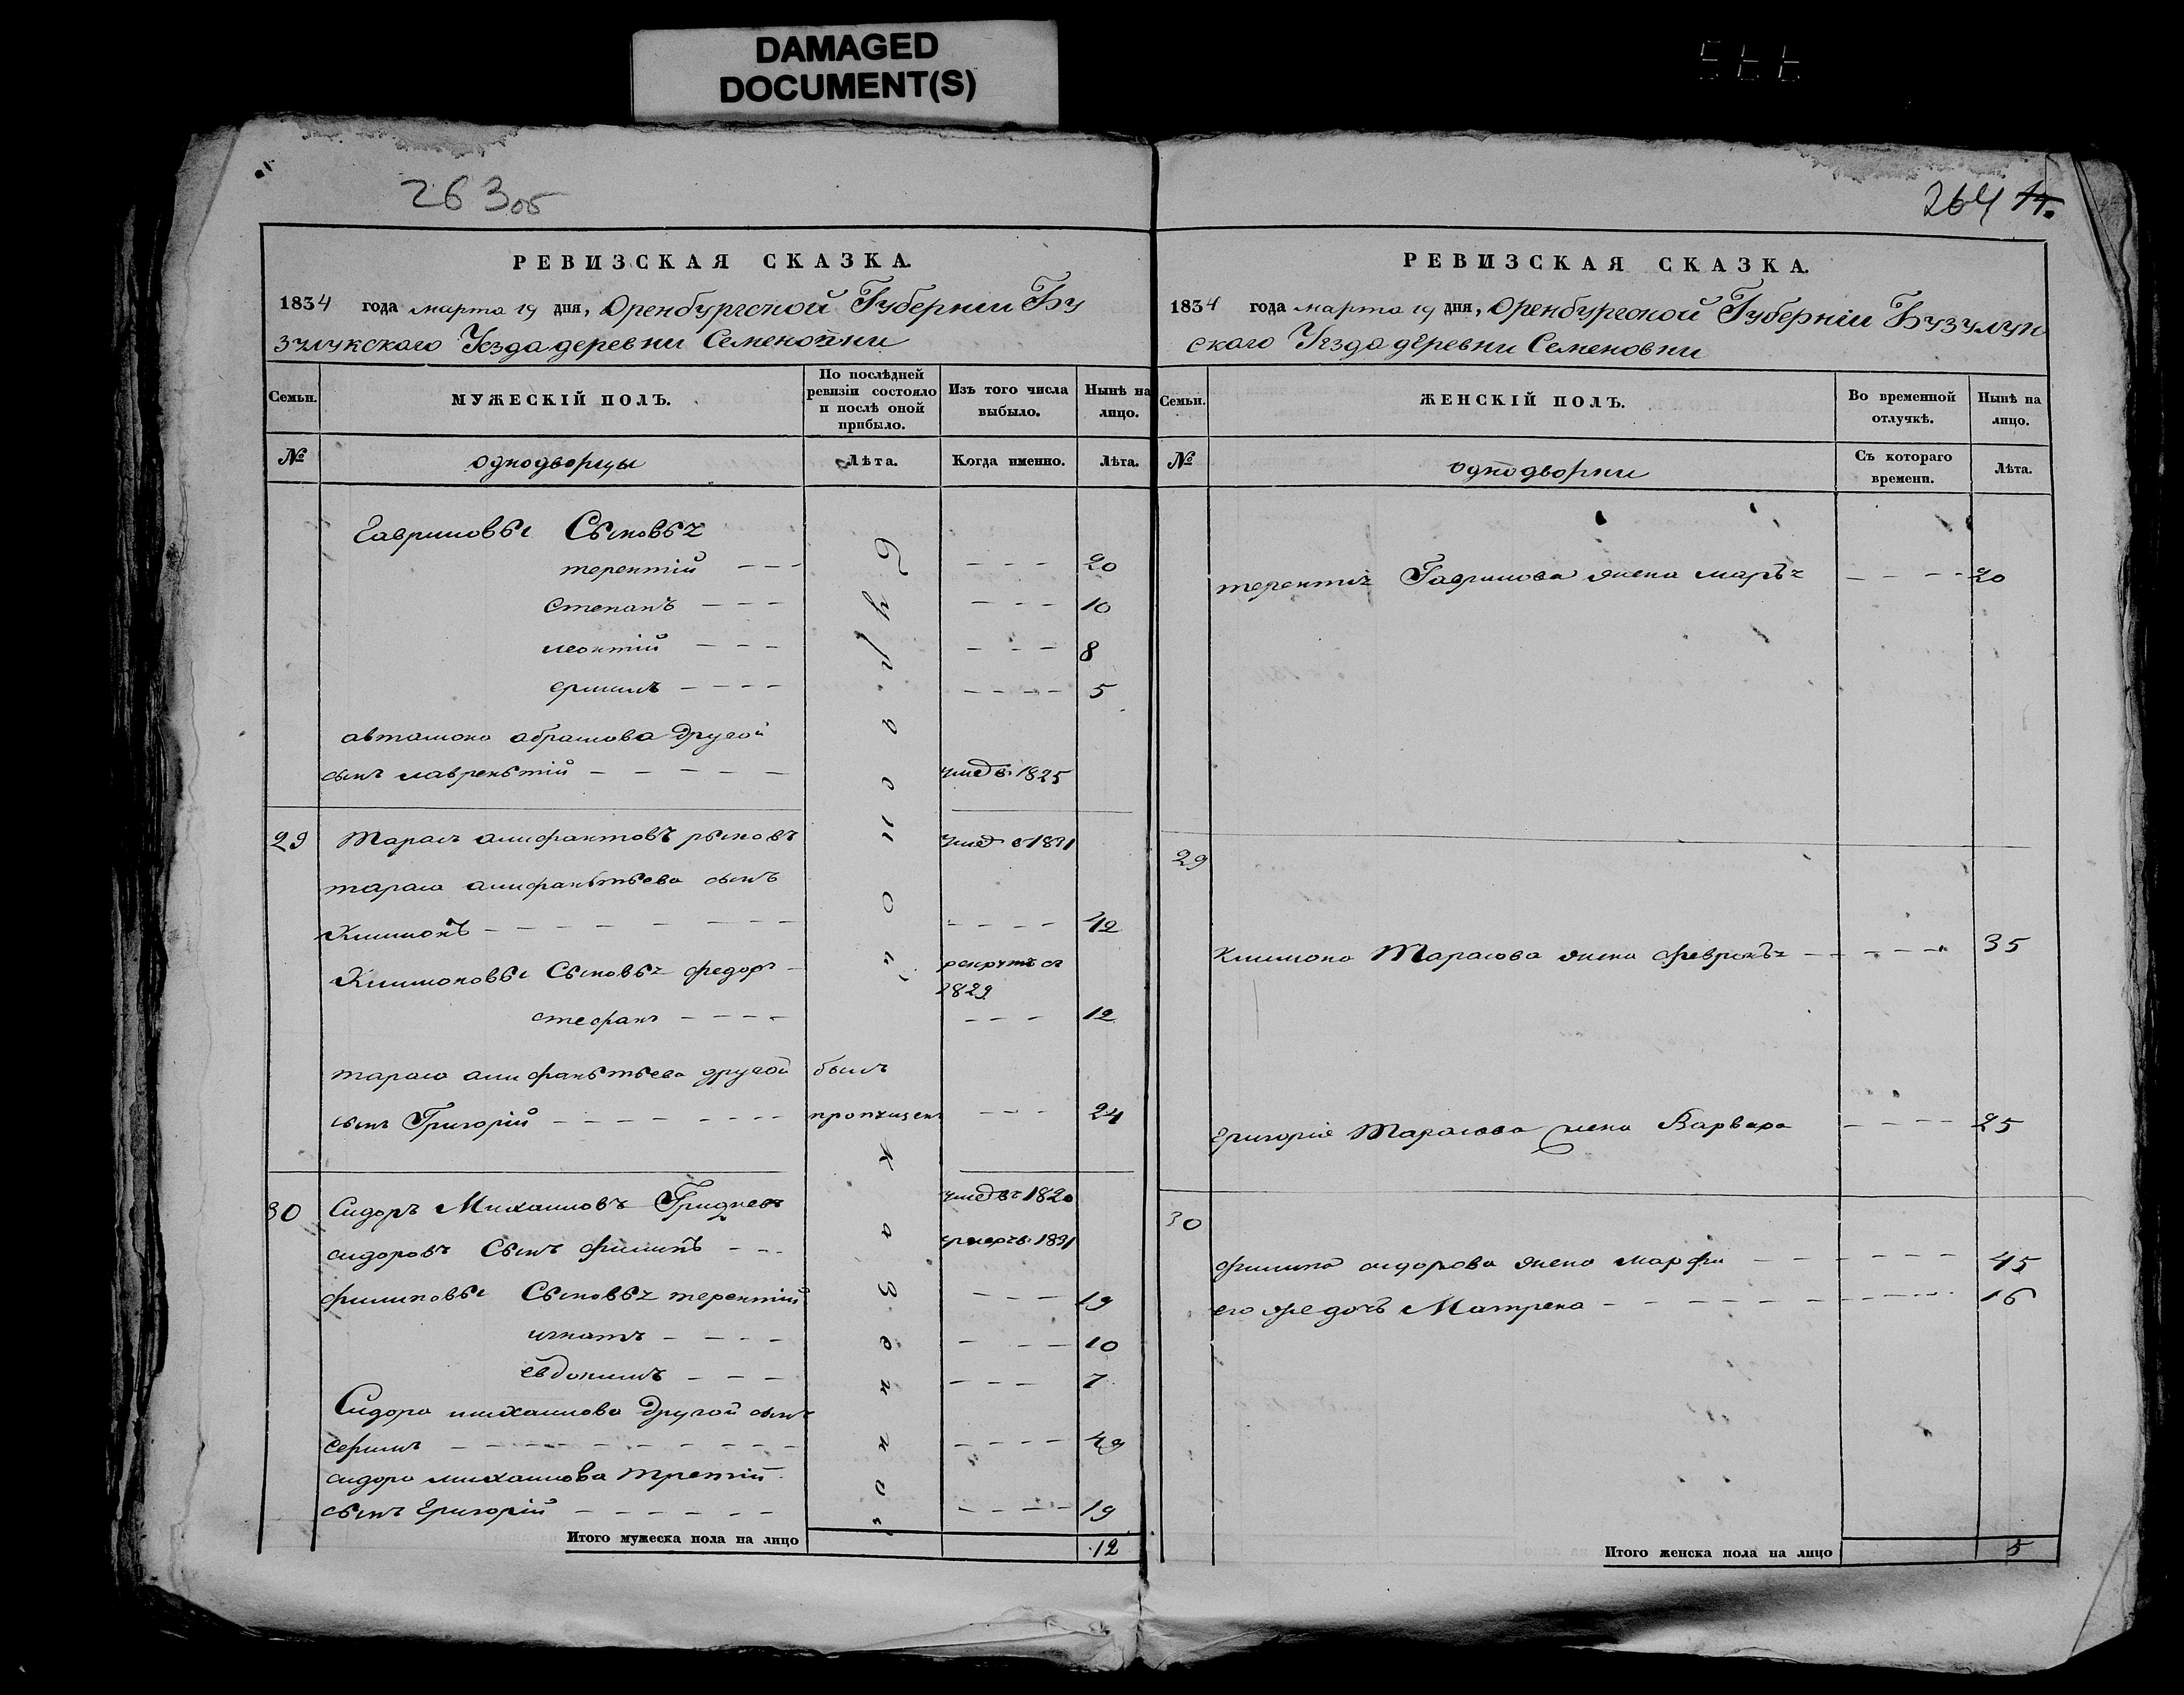 DAMAGED
DOCUMENT(S)
263об
РЕВИЗСКАЯ СКАЗКА.
1834 года марта 19 дня, Оренбургской Губернии Бу
зулукского Уезда деревни Семеновки
Семьи.
МУЖЕСКІЙ ПОЛЪ.
По послѣдней
ревизіи состояло
и послѣ оной
прибыло.
Изъ того числа
выбыло.
Нынѣ на
лицо.
№
однодворцы
Лѣта.
Когда именно.
Лѣта.
Гавриловы Сыновья
терентій - - - 20
степанъ - - - 10
леонтій - - - 8
- - - - 5
автамона абрамова другой
сынъ лаврентій - - - - - умѣ въ 1825
29 Тарасъ алифантовъ рыковъ умѣ в 1831
тараса алифантьева сынъ
Климонъ - - - - 42
Климоновы Сыновья федоръ - рекрутъ въ
1829
стефанъ - - - - 12
тараса алифантьева другой былъ
сынъ Григорій - - - - пропущенъ - - - 24
30 Сидоръ Михаиловъ Гридневъ умѣ въ 1820
сидоровъ Сынъ филипъ - - - умеръ въ 1831
филиповы Сыновья терентій - - - 19
игнатъ - - - - 10
евдокимъ - - - 7
Сидора михаилова другой сынъ
- - - - 49
сидора михаилова третій
сынъ Григорій - - - - - - 19
Итого мужеска пола на лицо 12
264
РЕВИЗСКАЯ СКАЗКА.
1834 года марта 19 дня, Оренбургской Губерніи Бузулук
ского Уѣзда деревни Семеновки
Семьи.
ЖЕНСКІЙ ПОЛЪ.
Во временной
отлучкѣ.
Нынѣ на
лицо.
№
однодворки
Съ котораго
времени.
Лѣта.
Гаврилова жена марья - - - - 20
29
Климона Тарасова жена - - - - 35
Григорія Тарасова жена Варвара - - - - 25
30
филипа сидорова жена марфа - - - - - - 45
его же дочь Матрена - - - - - - 16
Итого женска пола на лицо 5